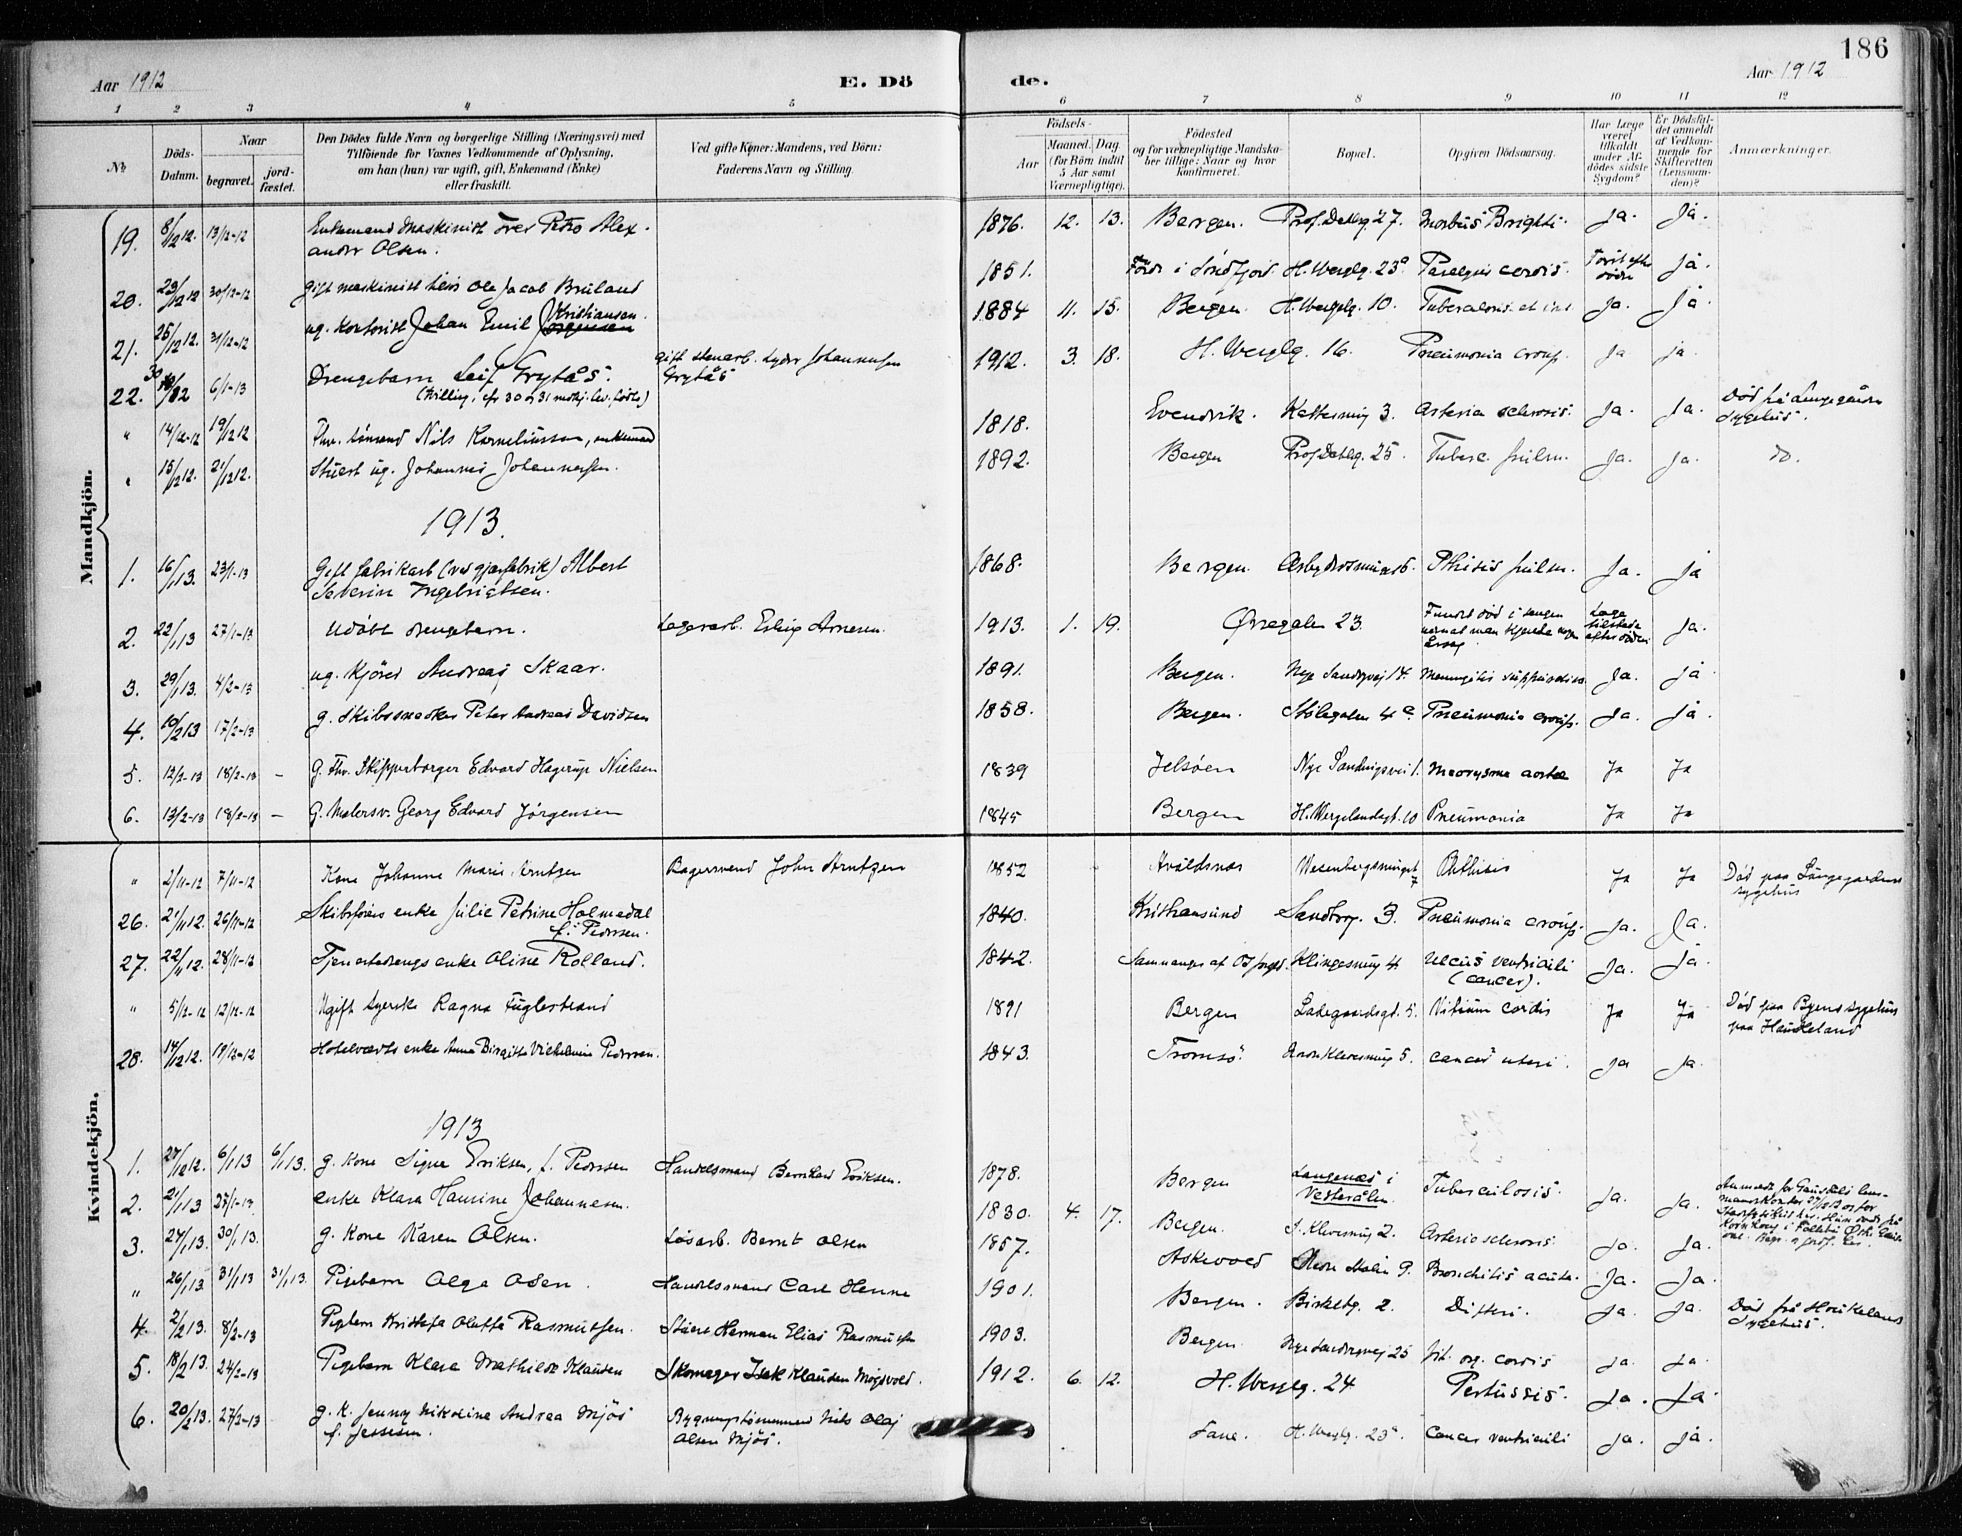 186
Aar 1912 E. Dö de. Aar 1912
1 2 3 4 5 6 7 8 9 10 11 12
№ Döds-Datum. Naar begravet. jord-fæstet. Den Dödes fulde Navn og borgerlige Stilling (Næringsvei) med Tilföiende for Voxnes Vedkommende af Oplysning, om han (hun) var ugift, gift, Enkemand (Enke) eller fraskilt. Ved gifte Koner: Mandens, ved Börn: Faderens Navn og Stilling. Födsels- Aar Maaned. (for Börn indtil 5 Aar samt Værnepligtige). Dag Födested og for værnepligtige Mandskaber tillige: Naar og hvor konfirmeret. Bopæl. Opgiven Dödsaarsag. Har Læge været tilkaldt under Afdödes sidste Sygdom? Er Dödsfaldet anmeldt af Vedkommende for Skifteretten (Lensmanden)? Anmærkninger.
Mandkjön.
19. 8/12 12. 13/12-12 Enkemand Maskinist Petro Alexander Olsen. 1876. 12. 13. Bergen. Prof. Dahlsg. 27. Morbus Brighti. Ja. Ja.
20. 23/12 12 30/12-12 gift maskinist Ole Jacob Bruland 1851. Förde i Söndfjord H. Werglg. 23a Paralysis cordis. Först efter döden Ja.
21. 25/12 12. 31/12-12 ug. Kontorist Johan Emil Jörgensen Kristiansen. 1884 11. 15. Bergen. H. Werglg. 10. Ja. Ja
22. 30/12 6/1-13 Drengebarn Leif Grytås. gift stenarb. Lyder Johannesen Grytås 1912. 3. 18. H. Werglg. 16. Pneumonia croup. Ja ja.
" 14/12-12 19/12 12 Fhv. tömand Nils Korneliussen, enkemand 1818. Evendvik. 3. Arteria sclerosis. Ja. Ja. Död på Lungegården Sygehus.
" 15/12 12. 21/12 12. Stuert ug. Johannes Johannessen. 1892. Bergen Prof Dahlg. 25. Tuberc. pulm. Ja. Ja. do.
1913.
1. 16/1 13. 23/1-13 Gift fabrikarb (ved gjærfabrik) Albert Severin Ingebrigtsen. 1868. Bergen Phisis pulm. Ja. Ja
2. 22/1 13 27/1-13 Udöbt drengebarn. Lagerarb. Erling Arnesen. 1913. 1. 19. Øvregaten 23. Fundet död i sengen Læge tilstede efter döden Ja.
3. 29/1 13. 4/2-13 ug. Kjörer Andreas Skaar. 1891. Bergen. Nye Sandvgvej 14. Meningitis suppurativa Ja. Ja
4. 10/2 13 17/2-13 g. Skibssnedker Peter Andreas Davidsen 1858. Bergen. Stölegaten 4 c. Pneumonia croup. Ja. Ja
5. 12/2-13 18/2-13 – G. Fhv. Skipperborger Edvard Hagerup Nielsen 1839 Jelsöen Nye Sandvigsvei 1. aortae Ja Ja
6. 13/2-13 18/2-13 – G. Malersv. Georg Edvard Jörgensen 1845 Bergen H. Wergelandsgt. 10 Pneumonia Ja Ja
Kvindekjön.
" 2/11-12 7/11-12 Kone Johanne Marie Arntzen Bagersvend John Arntzen 1852 Avaldsnæs Wesenbergsmuget 7 Phthisis Ja Ja Död paa Lungegaardens sygehus
26. 21/11 12. 26/11-12 Skibsförers enke Julie Petrine Holmedal f. Pedersen. 1840. Kristiansund Sandbrg. 3. Pneumonia croup. Ja. Ja.
27. 22/11 12. 28/11-12 Tjenestedrengs enke Oline Rolland. 1842. Samnanger af Os prgd. Klingesmug 4 Ulcus ventriculi (cancer). Ja. Ja.
" 5/12-12 12/12-12 Ugift syerske Ragna Fuglestrand 1891 Bergen Ladegaardsgt. 5. Vitium cordis Ja Ja Död paa Byens sygehus paa Haukeland
28. 14/12 12. 19/12-12 Hotelværts enke Anna Birgitte Vilhelmine Pedersen. 1843. Tromsö. 5. cancer uteri. Ja Ja.
1913
1. 27/12 12. 6/1 13 6/1 13. g. Kone Signe Eriksen, f. Pedersen Handelsmand Bernhard Eriksen. 1878. Bergen Langenæs i Vesterålen Tuberculosis. Ja. Ja.
2. 21/1 13 25/1-13. enke Klara Hansine Johannesen. 1830. 4. 17. Bergen. S. Klevesmug 2. Arteriasclerosis Ja. Ja.
3. 24/1 13. 30/1 13. g. Kone Karen Olsen. Lösarb. Bernt Olsen 1857. Askevold 9. Bronchitis acuta. Ja. Ja.
" 26/1 13. 31/1 13 31/1 13. Pigebarn Olga Olsen. Handelsmand Carl Henne 1901. Bergen. Birkebg. 2. Difteri. Ja. Ja. Död på Haukeland Sygehus.
4. 2/2 13. 8/2-13 Pigebarn Kristofa Olaffa Rasmussen. Stuert Herman Elias Rasmussen 1903. Bergen. Nye Sandvgsvej 25 Vit. org. cordis Ja. Ja.
5. 18/2 13. 24/2-13 Pigebarn Klara Mathilde Klausen Skomager Isak Klausen Mögsvold. 1912. 6. 12. H. Werglg. 24 Pertussis. Ja. Ja
6. 20/2 13. 27/2-13 g. K. Jenny Nikoline Andrea Mjös f. Jessesen. Bygningstömmermand Nils Olaj Olsen Mjös. Fane. H. Werglg. 23a. Cancer ventriculi Ja. Ja.